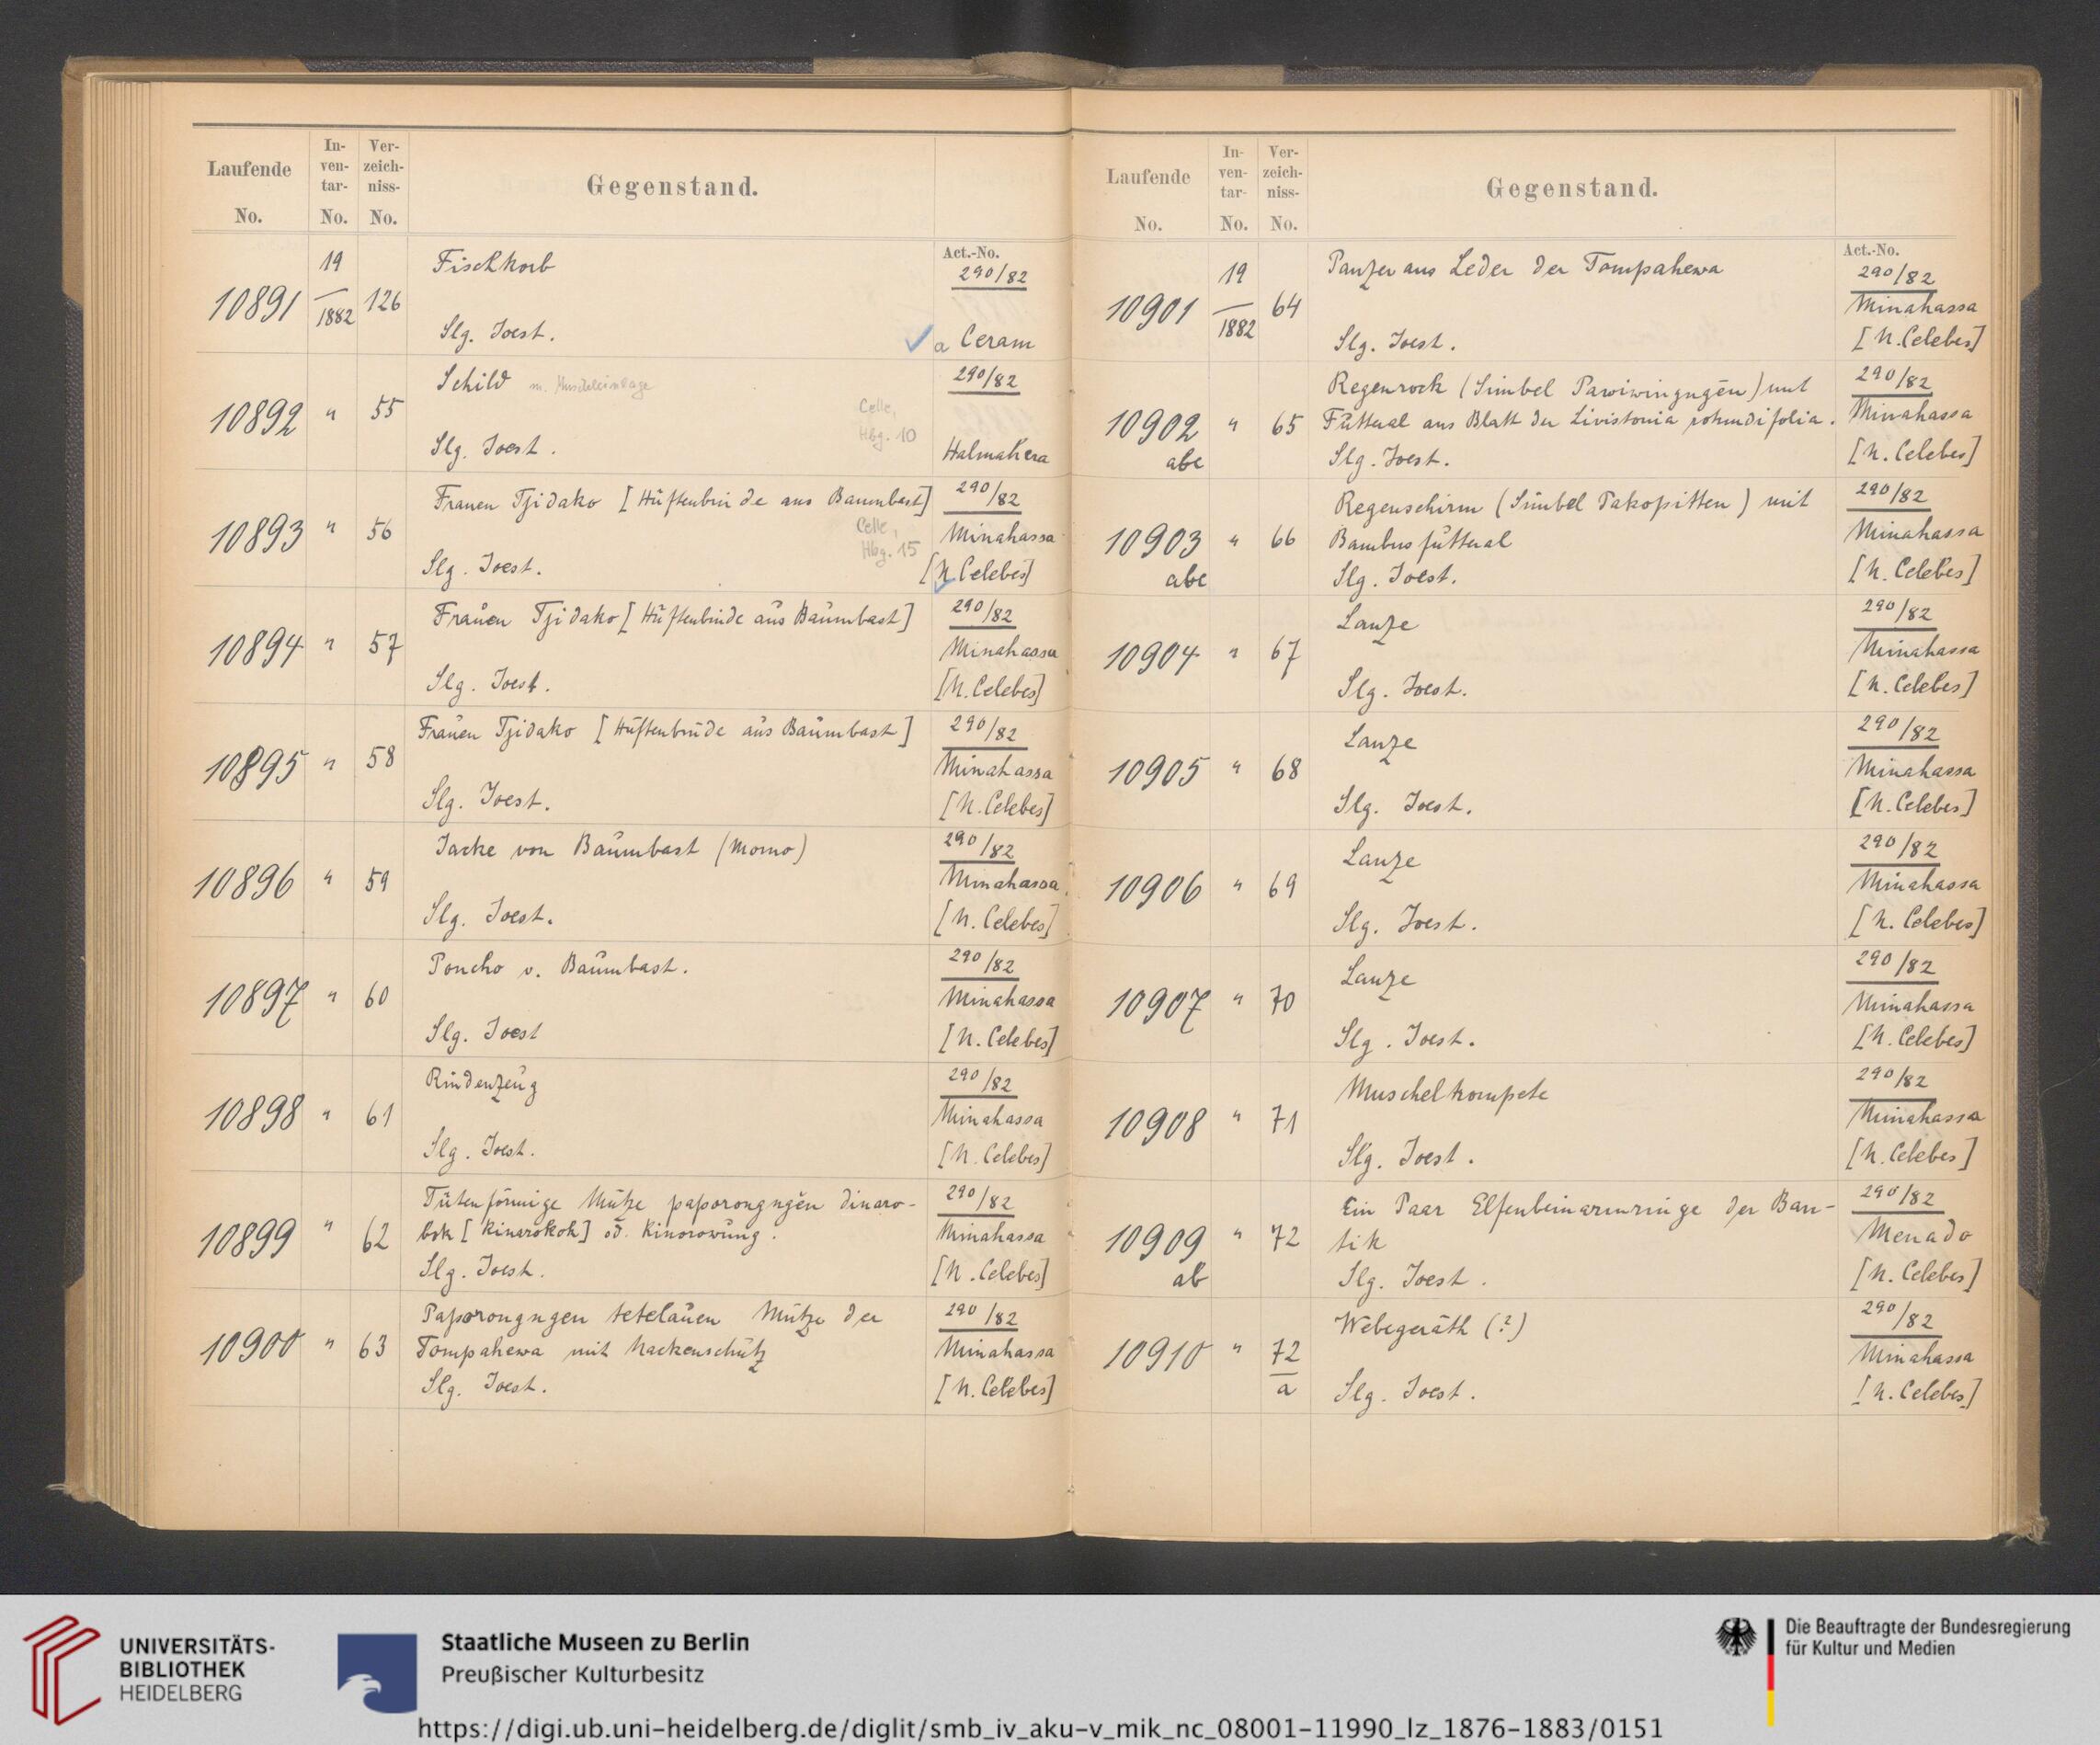 Laufende
No.
In-
ven-
tar-
No.
Ver-
zeich-
niss-
No.
Gegenstand.
Act.-No.
10891
19
1882
126
Fischkorb
Slg. Joest.
290/82
a Ceram
10892 " 55
Schild m. Muscheleinlage
Celle,
Hbg. 10
Slg. Joest.
290/82
Halmahera
10893 " 56
Frauen Tjidako [Hüftenbinde aus Baumbast]
Celle,
Hbg. 15
Slg. Joest.
290/82
Minahassa
[N. Celebes]
10894 " 57
Frauen Tjidako [Hüftenbinde aus Baumbast]
Slg. Joest.
290/82
Minahassa
[N. Celebes]
10895 " 58
Frauen Tjidako [Hüftenbinde aus Baumbast]
Slg. Joest.
290/82
Minahassa
[N. Celebes]
10896 " 59
Jacke von Baumbast (Momo)
Slg. Joest.
290/82
Minahassa
[N. Celebes]
10897 " 60
Poncho v. Baumbast.
Slg. Joest
290/82
Minahassa
[N. Celebes]
10898 " 61
Rindenzeug
Slg. Joest.
290/82
Minahassa
[N. Celebes]
10899 " 62
Tütenförmige Mütze paporongngěn dinaro-
kok [Kinarokok] od. Kinorowung.
Slg. Joest.
290/82
Minahassa
[N. Celebes]
10900 " 63
Paporongngen tetelauen Mütze der
Tompahewa mit Nackenschutz
Slg. Joest.
290/82
Minahassa
[N. Celebes]
Laufende
No.
In-
ven-
tar-
No.
Ver-
zeich-
niss-
No.
Gegenstand.
Act.-No.
10901
19
1882
64
Panzer aus Leder der Tompahewa
Slg. Joest.
290/82
Minahassa
[N. Celebes]
10902 " 65
abc
Regenrock (Simbel Pawiwingngēn) mit
Futteral aus Blatt der Livistonia rotundifolia.
Slg. Joest.
290/82
Minahassa
[N. Celebes]
10903 " 66
abc
Regenschirm (Simbel Takopitten) mit
Bambusfutteral
Slg. Joest.
290/82
Minahassa
[N. Celebes]
10904 " 67
Lanze
Slg. Joest.
290/82
Minahassa
[N. Celebes]
10905 " 68
Lanze
Slg. Joest.
290/82
Minahassa
[N. Celebes]
10906 " 69
Lanze
Slg. Joest.
290/82
Minahassa
[N. Celebes]
10907 " 70
Lanze
Slg. Joest.
290/82
Minahassa
[N. Celebes]
10908 " 71
Muscheltrompete
Slg. Joest.
290/82
Minahassa
[N. Celebes]
10909 " 72
ab
Ein Paar Elfenbeinarmringe der Ban-
tik
Slg. Joest.
290/82
Menado
[N. Celebes]
10910 " 72
a
Webegeräth (?)
Slg. Joest.
290/82
Minahassa
[N. Celebes]
UNIVERSITÄTS-
BIBLIOTHEK
HEIDELBERG
Staatliche Museen zu Berlin
Preußischer Kulturbesitz
Die Beauftragte der Bundesregierung
für Kultur und Medien
https://digi.ub.uni-heidelberg.de/diglit/smb_iv_aku-v_mik_nc_08001-11990_lz_1876-1883/0151